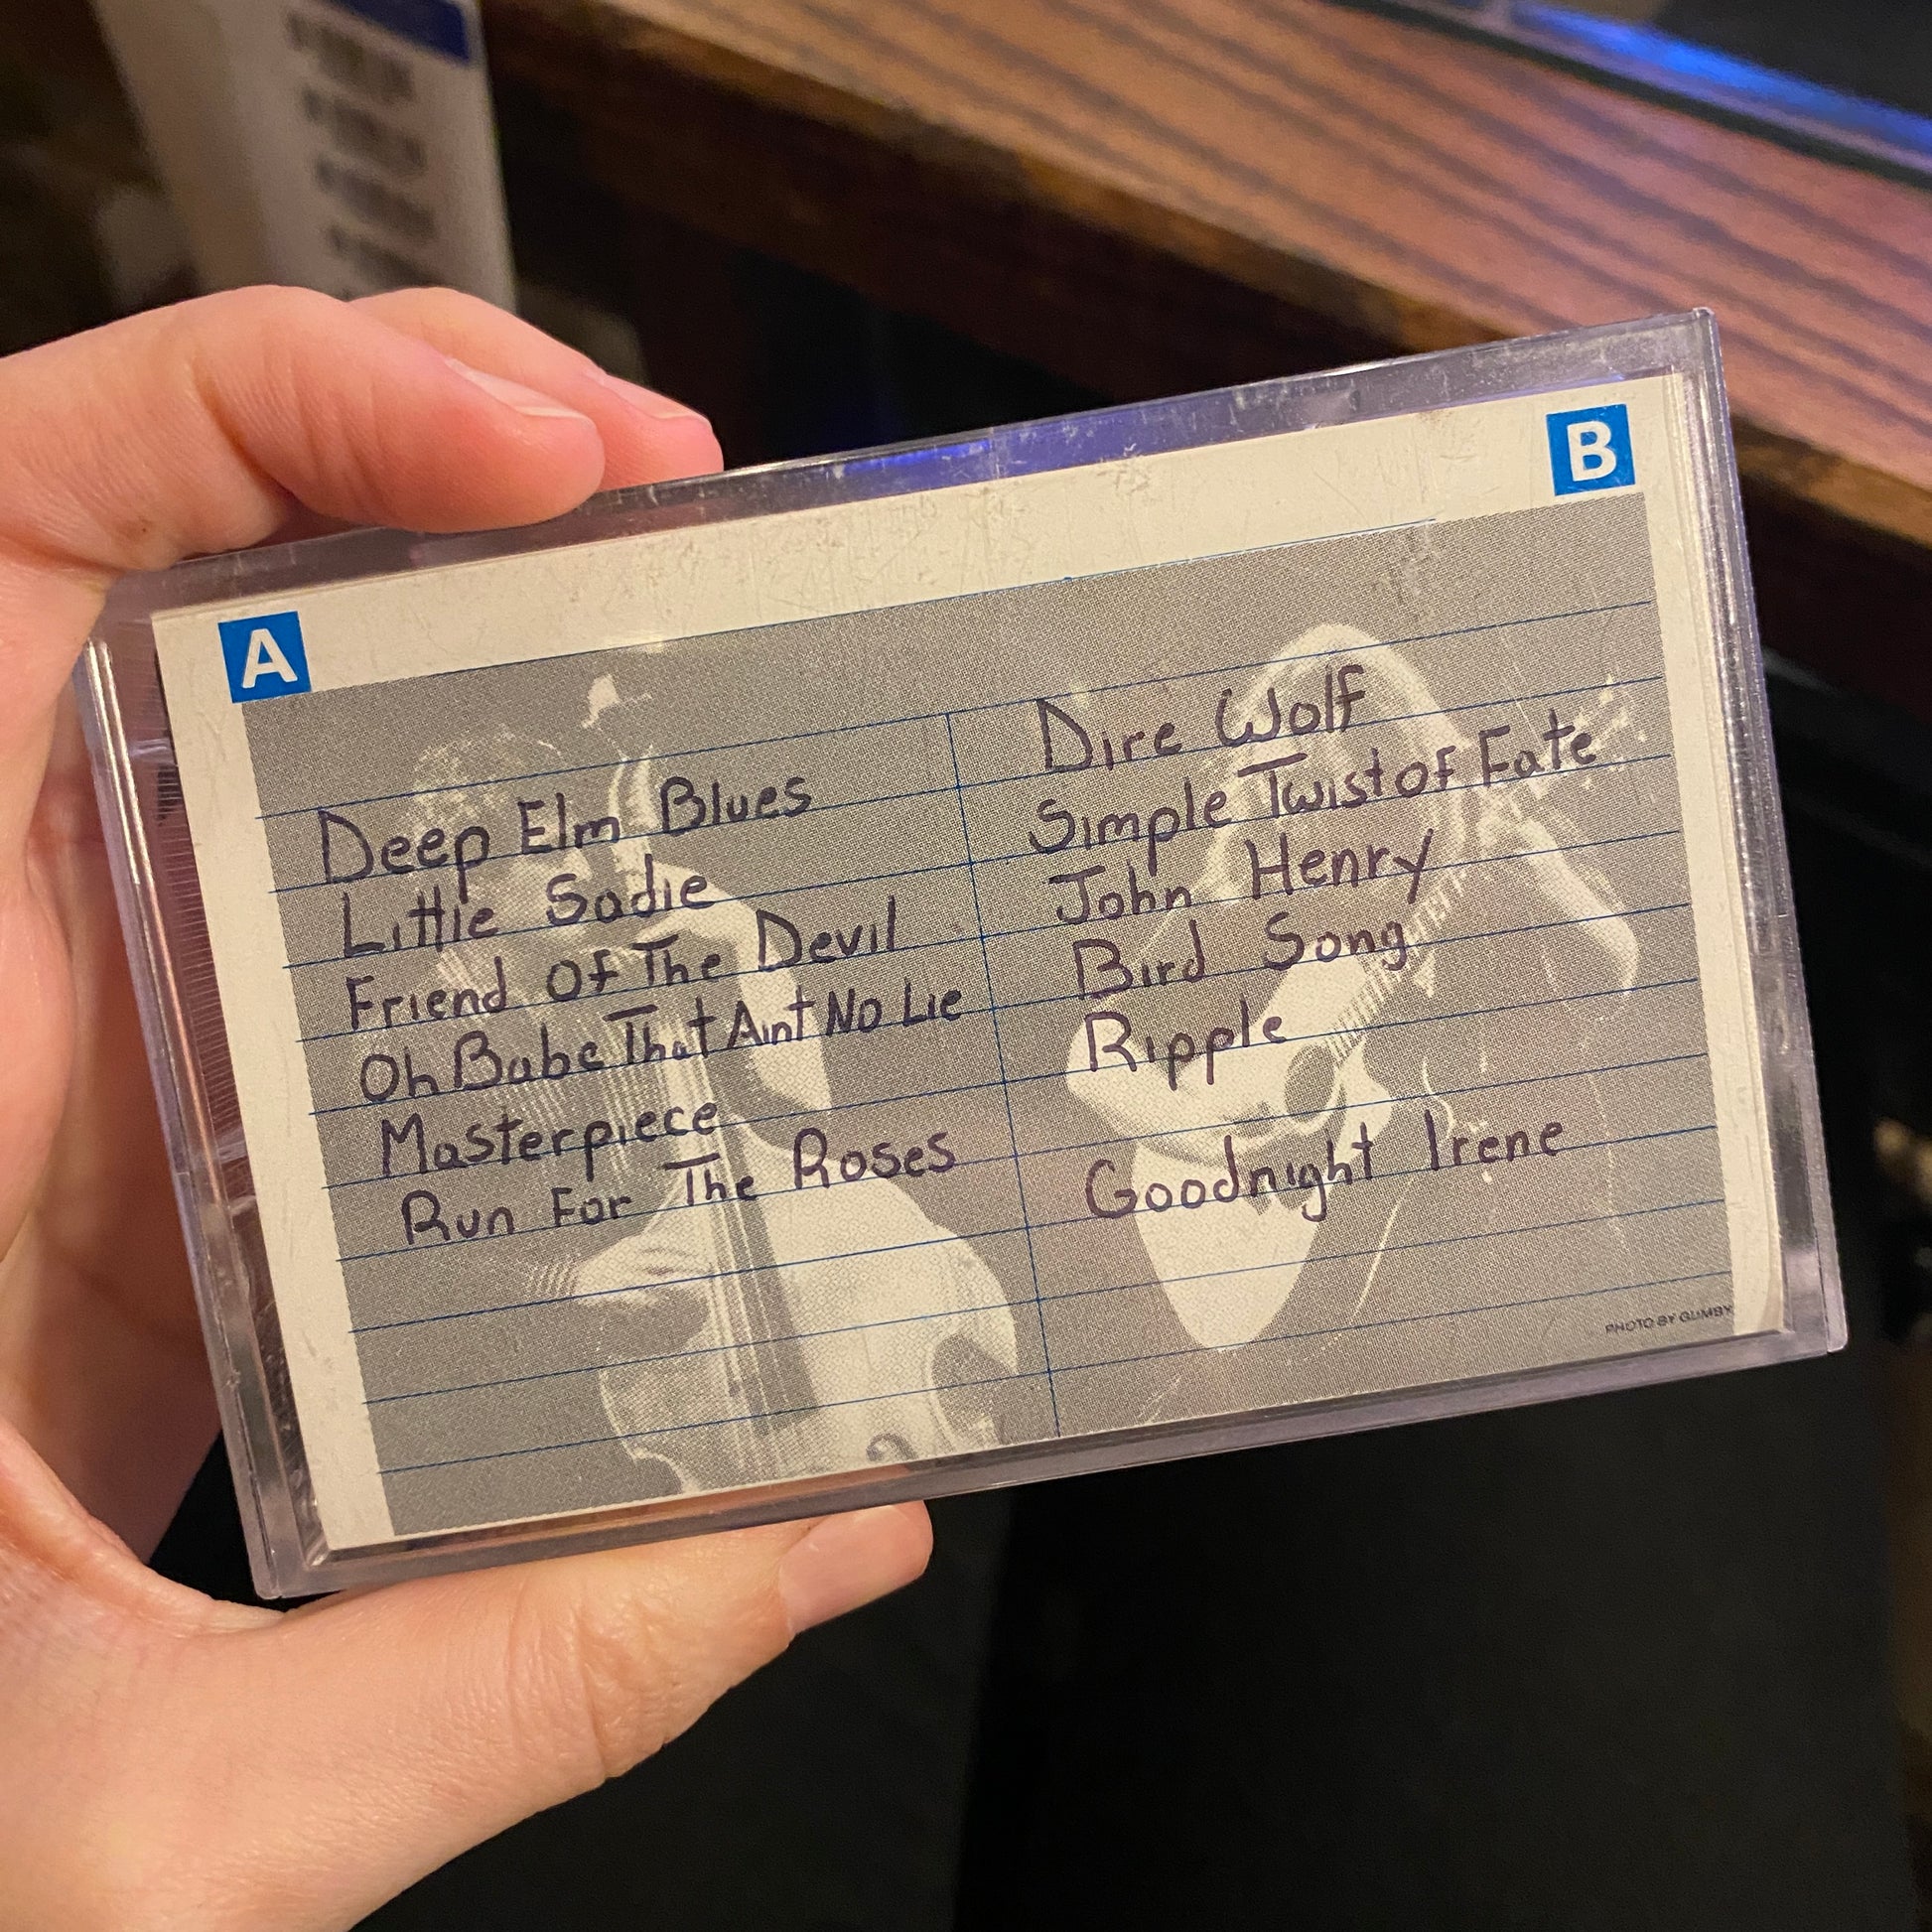 A
Deep Elm Blues
Little Sadie
Friend Of The Devil
Oh Babe That Aint No Lie
Masterpiece
Run For The Roses
B
Dire Wolf
Simple Twist of Fate
John Henry
Bird Song
Ripple
Goodnight Irene
PHOTO BY GUMBY